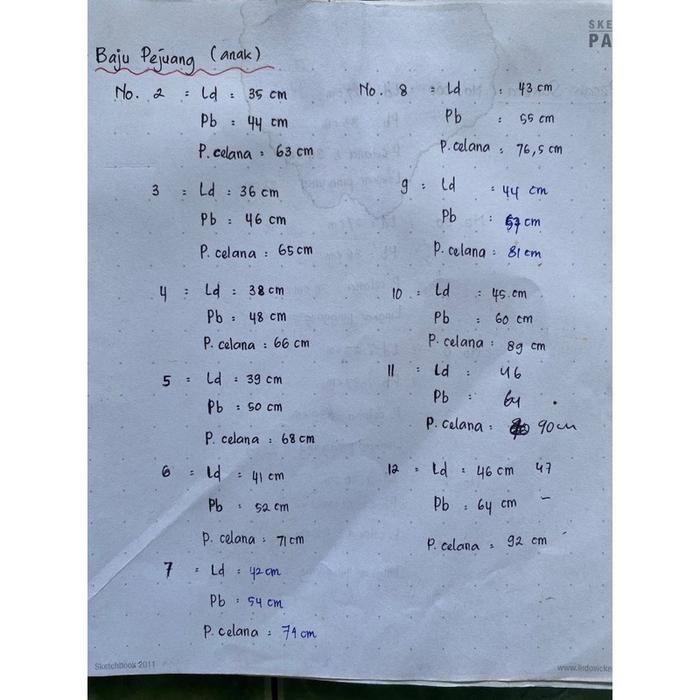 SKE
PA
Baju Pejuang (anak)
No. 2 = Ld = 35 cm
Pb = 44 cm
P. celana = 63 cm
3 = Ld = 36 cm
Pb = 46 cm
P. celana = 65 cm
4 = Ld = 38 cm
Pb = 48 cm
P. celana = 66 cm
5 = Ld = 39 cm
Pb = 50 cm
P. celana = 68 cm
6 = Ld = 41 cm
Pb = 52 cm
P. celana = 71 cm
7 = Ld = 42 cm
Pb = 54 cm
P. celana = 74 cm
No. 8 = Ld : 43 cm
Pb : 55 cm
P. celana : 76,5 cm
9 = Ld : 44 cm
Pb : 57 cm
P. celana : 81 cm
10 = Ld : 45 cm
Pb : 60 cm
P. celana : 89 cm
11 = Ld : 46
Pb : 64
P. celana : 90 cm
12 = Ld : 46 cm 47
Pb : 64 cm
P. celana : 92 cm
Sketchbook 2011